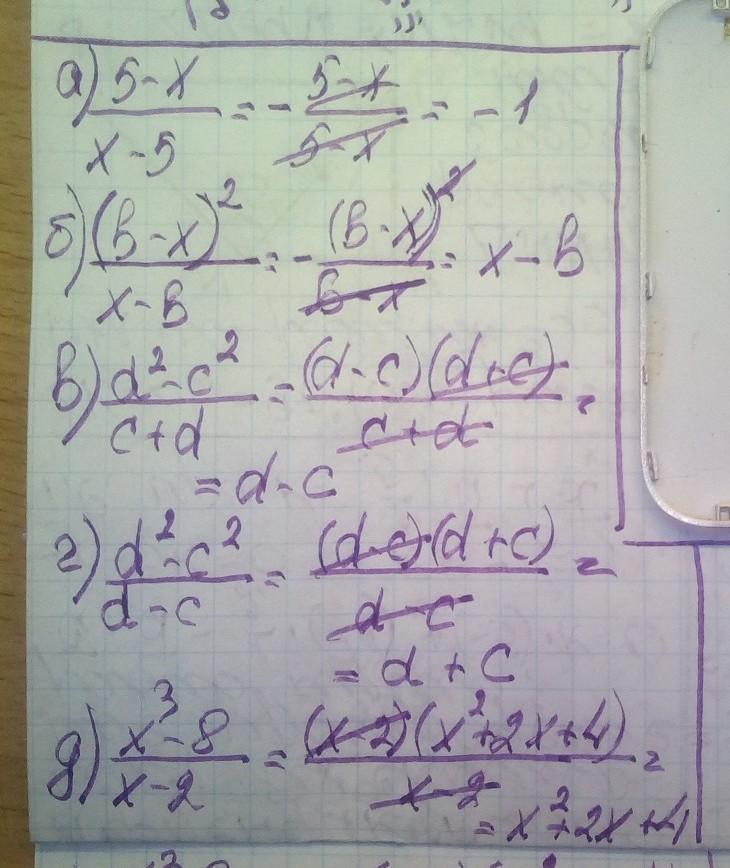 а) (5-x)/(x-5) = - (5-x)/(5-x) = -1
б) (b-x)²/(x-b) = - (b-x)²/(b-x) = x-b
в) (d²-c²)/(c+d) = (d-c)(d+c)/(c+d) =
= d-c
г) (d²-c²)/(d-c) = (d-c)(d+c)/(d-c) =
= d+c
д) (x³-8)/(x-2) = (x-2)(x²+2x+4)/(x-2) =
= x²+2x+4